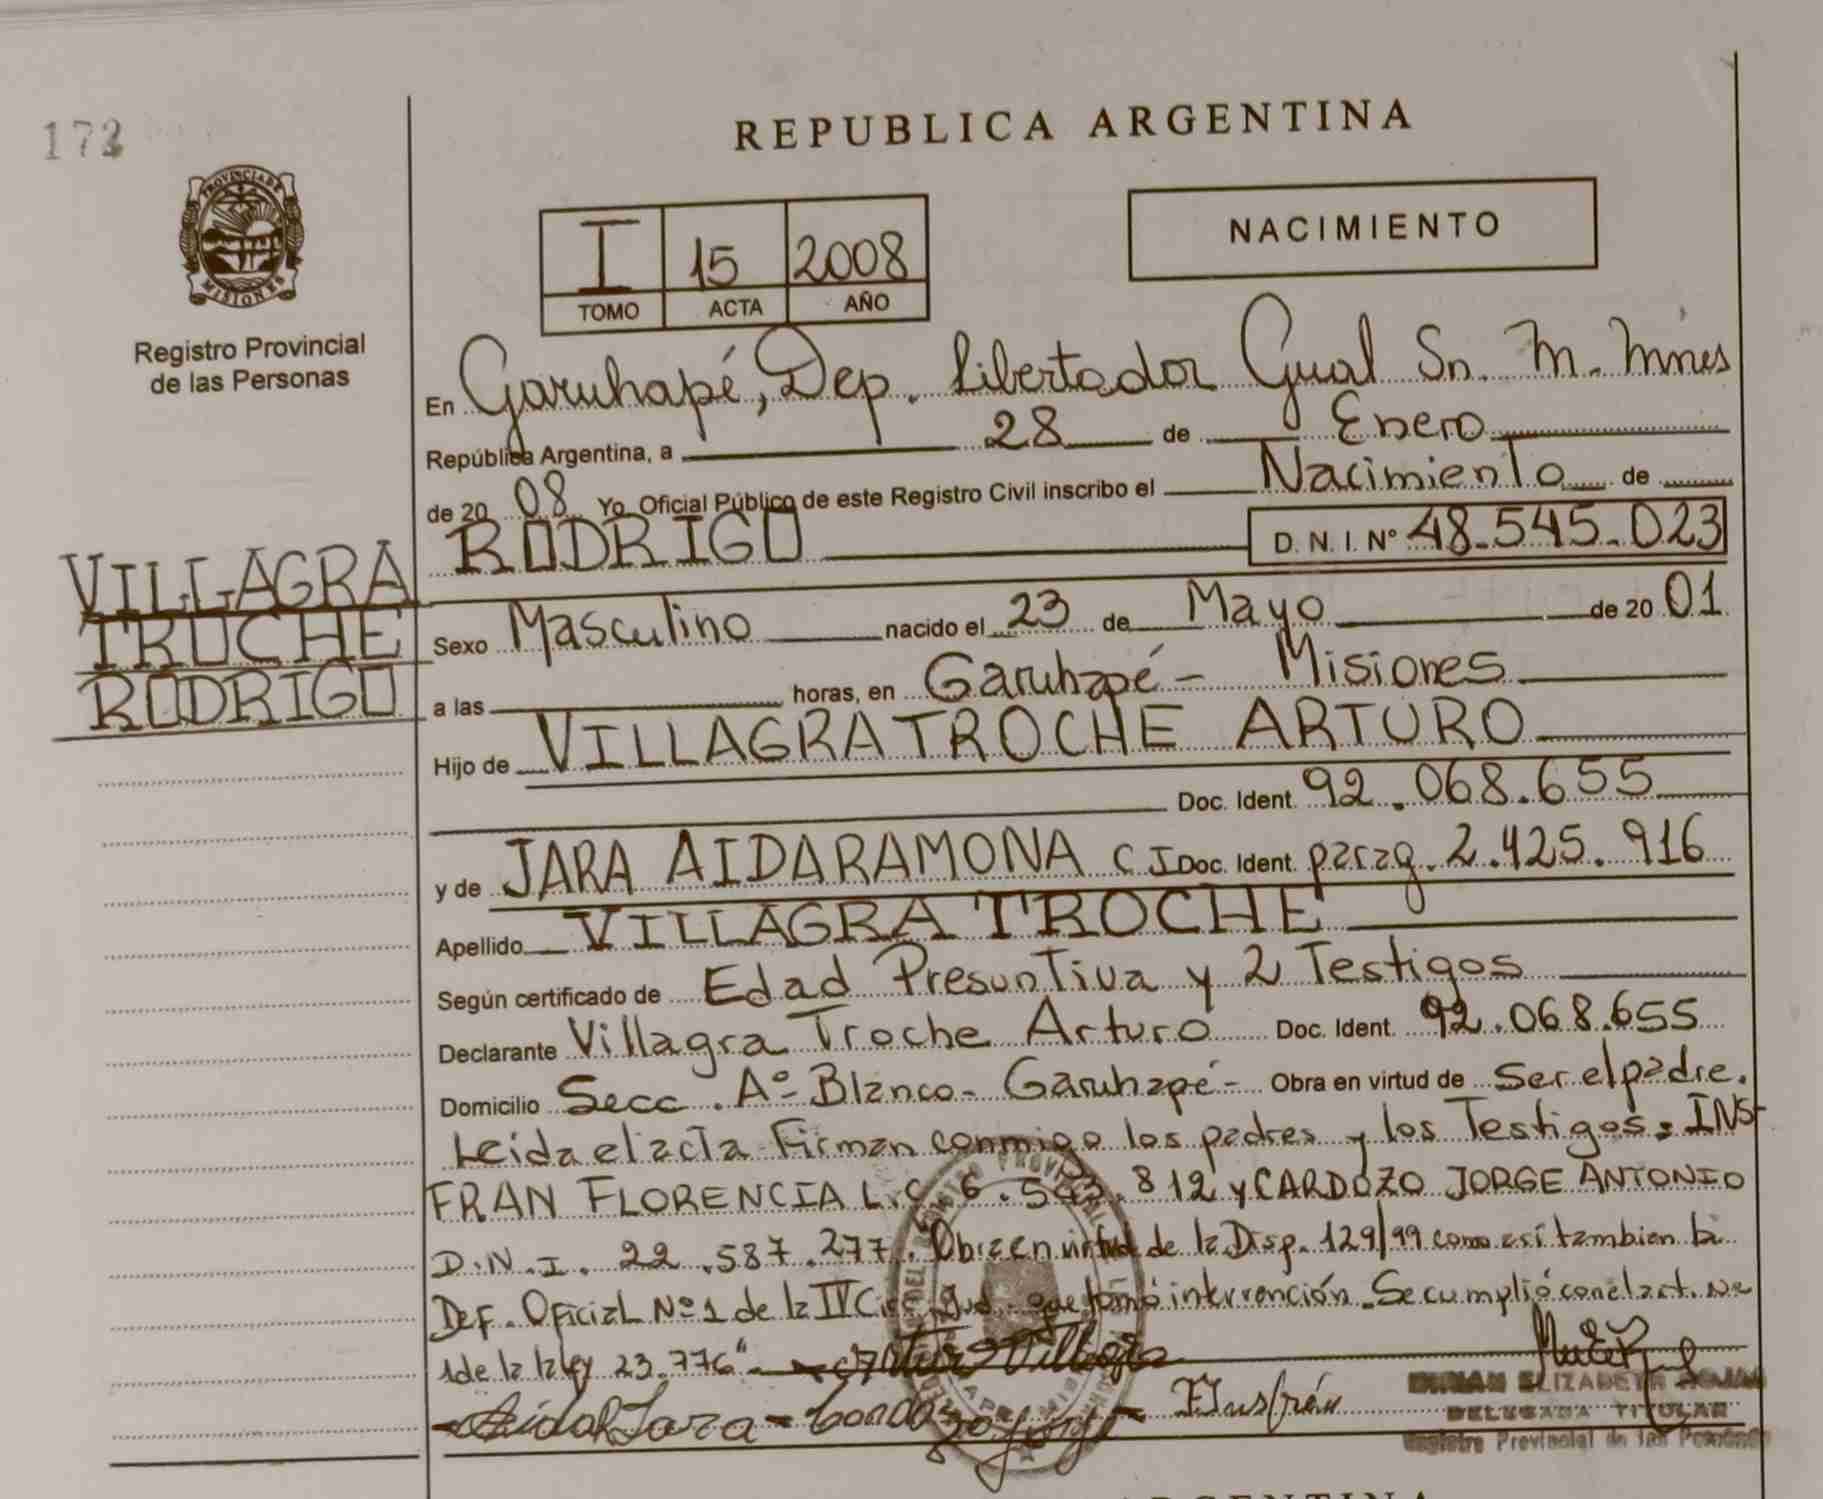 172
REPUBLICA ARGENTINA
PROVINCIA DE
MISIONES
Registro Provincial
de las Personas
I 15 2008
TOMO ACTA AÑO
NACIMIENTO
En Garuhapé, Dep. Libertador Gual Sn. M. Mnes
República Argentina, a 28 de Enero
de 20 08 Yo, Oficial Público de este Registro Civil inscribo el Nacimiento de
RODRIGO D. N. I. Nº 48.545.023
VILLAGRA
TROCHE
RODRIGO
Sexo Masculino nacido el 23 de Mayo de 20 01
a las horas, en Garuhapé - Misiones
Hijo de VILLAGRA TROCHE ARTURO
Doc. Ident. 92.068.655
y de JARA AIDA RAMONA C I Doc. Ident. parag. 2.425.916
Apellido VILLAGRA TROCHE
Según certificado de Edad Presuntiva y 2 Testigos
Declarante Villagra Troche Arturo Doc. Ident. 92.068.655
Domicilio Secc. Aº Blanco - Garuhapé - Obra en virtud de Ser el padre.
Leida el acta Firman conmigo los padres y los Testigos: INS-
FRAN FLORENCIA L.C. 6.543.812 y CARDOZO JORGE ANTONIO
D.N.I. 22.587.277. Obra en virtud de la Disp. 129/99 como asi tambien la
Def. Oficial Nº 1 de la IV Circ. Jud. que tomó intervención. Se cumplió con el art.
1 de la ley 23.776"
Arturo Villagra
Aida Jara - Cardozo Jorge - Insfrán
MIRIAN ELIZABETH ROJAS
DELEGADA TITULAR
Registro Provincial de las Personas
ARGENTINA